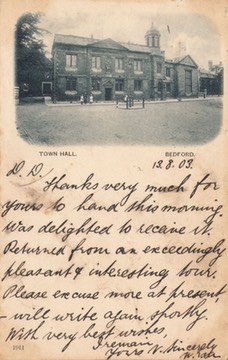 TOWN HALL, BEDFORD.
13.8.03.
D. D.
Thanks very much for
yours to hand this morning.
Was delighted to receive it.
Returned from an exceedingly
pleasant & interesting tour.
Please excuse more at present
- will write again shortly.
With very best wishes.
I remain
Yours V. Sincerely
2021